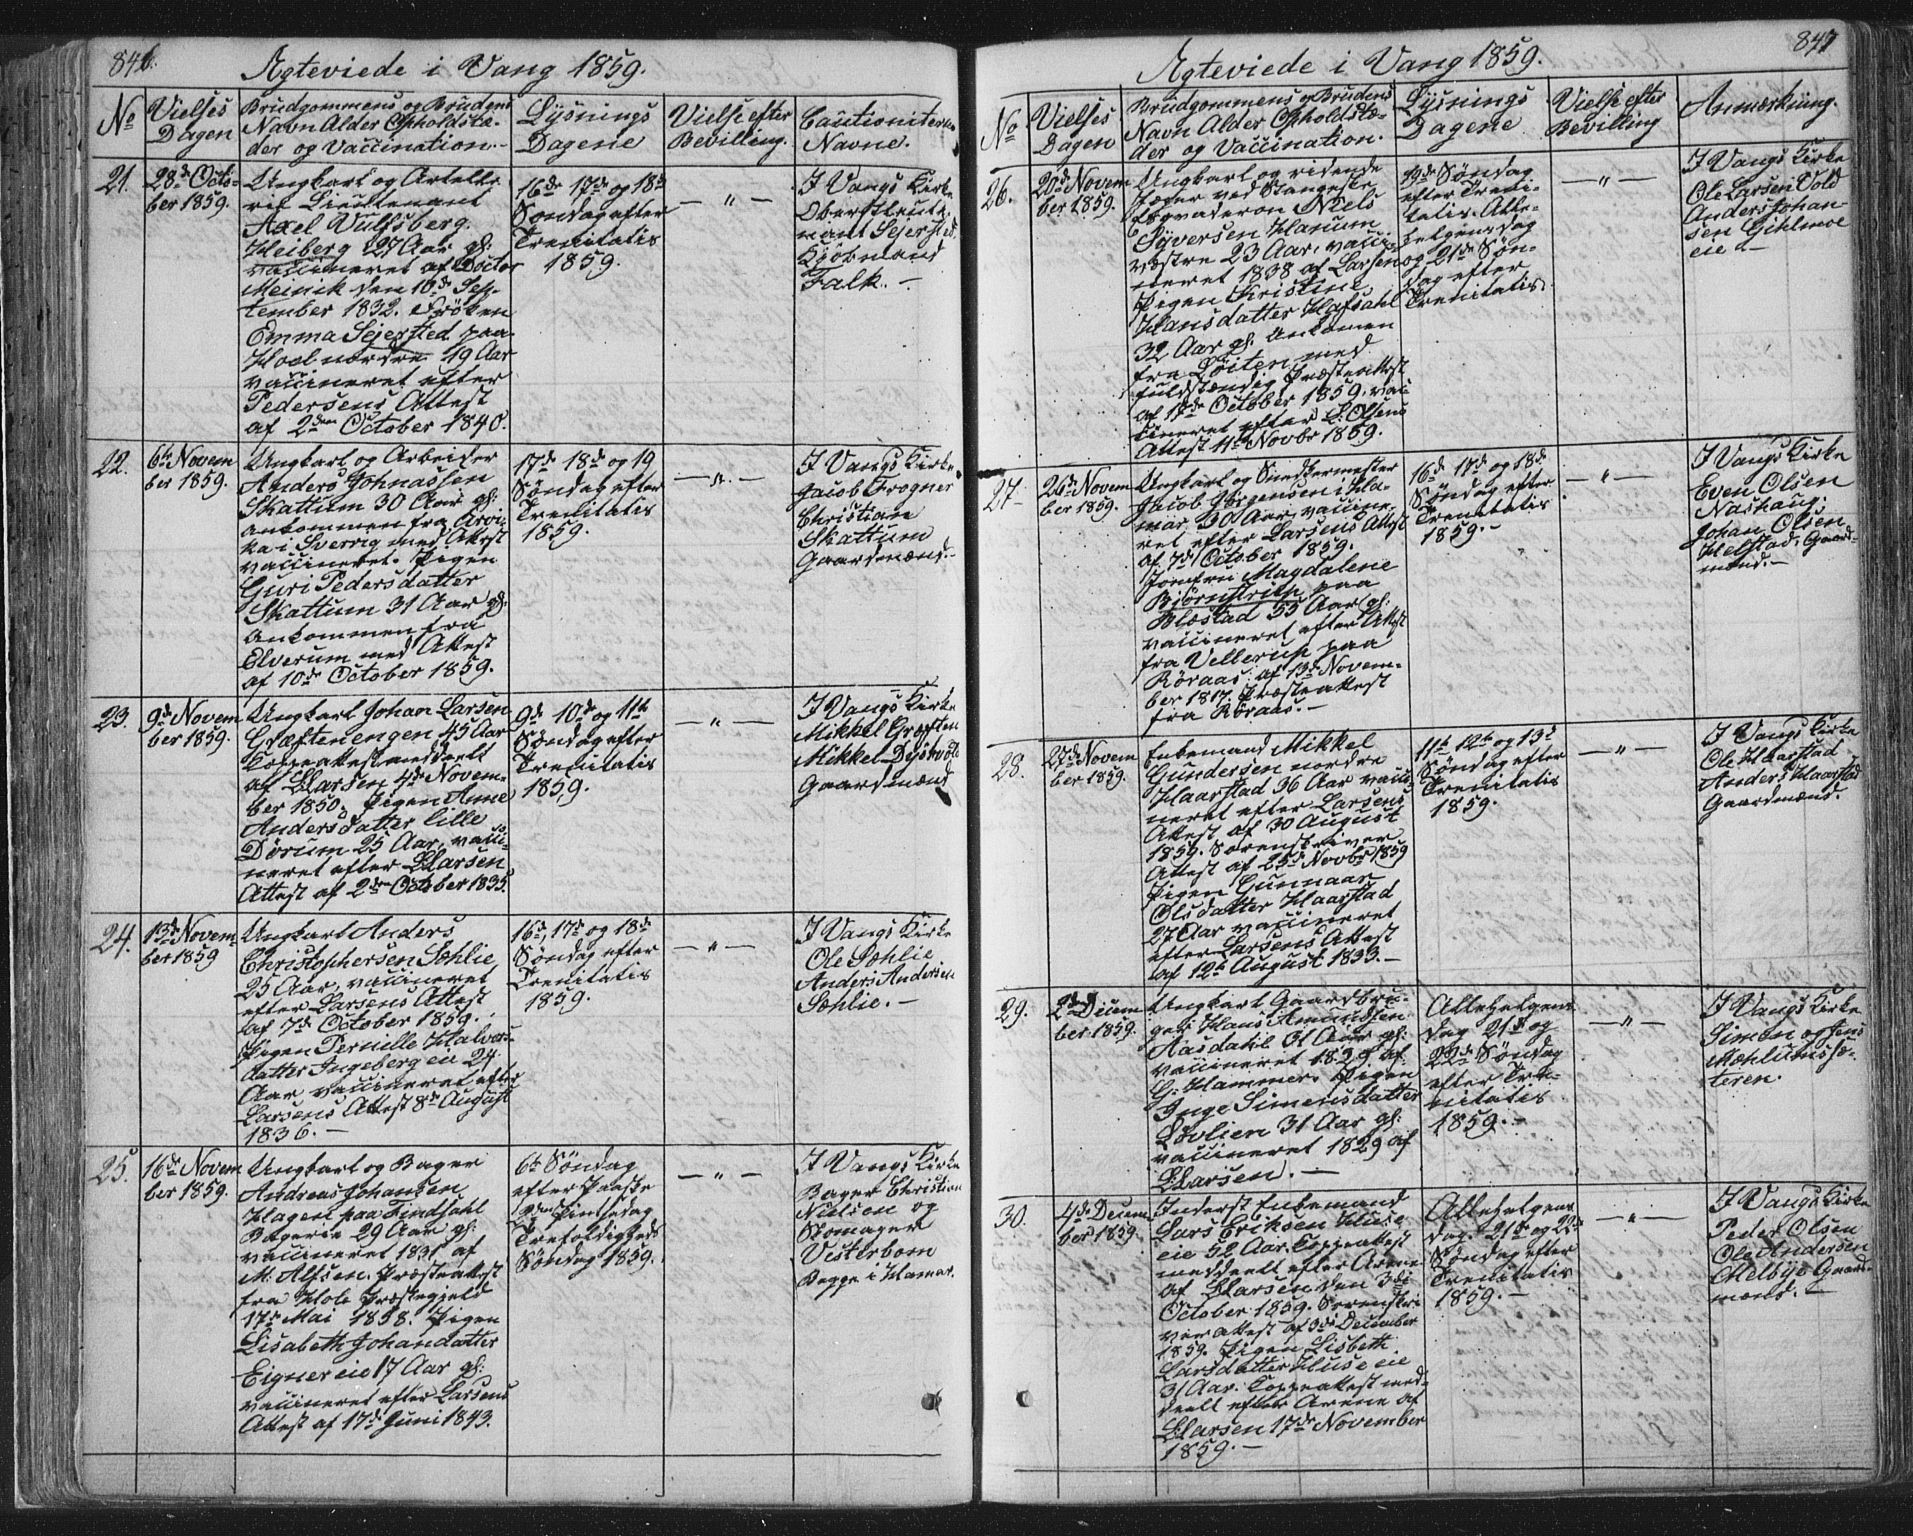 846.
Ægteviede i Vang 1859.
No
Vielses Dagen
Brudgommens og Brudens
Navn Alder Opholdstæ-
der og Vaccination.
Lysnings
Dagene
Vielse efter
Bevilling.
Cautionisternes
Navne.
21.
28de Octo-
ber 1859.
Ungkarl og Artelle-
rie Lieutenant
Axel Vulfsberg
Heiberg 27 Aar gl:
vaccineret af Doctor
Meinik den 10de Sep-
tember 1832. Frøken
Emma Sejersted paa
Hoel nordre 19 Aar
vaccineret efter
Pedersens Attest
af 2den October 1840.
16de 17de og 18de
Søndag efter
Trenitatis
1859.
— " —
I Vangs Kirke
Oberstleute-
nant Sejersted,
Kjøbmand
Falk. —
22.
6te Novem
ber 1859.
Ungkarl og Arbeider
Anders Johnassen
Skattum 30 Aar gl:
ankommen fra Arvi-
ka i Sverrig med Attest
vaccineret. Pigen
Guri Pedersdatter
Skattum 31 Aar gl:
ankommen fra
Elverum med Attest
af 10de October 1859.
17de 18de og 19
Søndag efter
Trenitatis
1859.
— " —
I Vangs Kirke
Jacob Frogner
Christian
Skattum
Gaardmænd.
23.
9de Novem
ber 1859.
Ungkarl Johan Larsen
Græftenengen 45 Aar
Koppeattest meddeelt
af LLarsen 4de Novem-
ber 1850. Pigen Anne
Andersdatter lille
Dørum 25 Aar, vacci-
neret efter LLarsen
Attest af 2den October 1835.
9de 10de og 11te
Søndag efter
Trenitatis
1859.
— " —
I Vangs Kirke
Mikkel Græften
Mikkel Dystvold
Gaardmænd
24.
13de Novem-
ber 1859
Ungkarl Anders
Christophersen Sæhlie
25 Aar, vaccineret
efter Larsens Attest
af 7de October 1859.
Pigen Pernelle Halvors-
datter Ingeberg eie 24
Aar vaccineret efter
Larsens Attest 8de August
1836. —
16de, 17de og 18de
Søndag efter
Trenitatis
1859.
— " —
I Vangs Kirke
Ole Sæhlie
Anders Andersen
Sæhlie. —
25.
16de Novem
ber 1859.
Ungkarl og Bager
Andreas Johansen
Hagen paa Findsahl
Bagerie 29 Aar gl:
vaccineret 1831 af
M. Alfsen. Præsteattest
fra Hole Præstegjeld
17de Mai 1858. Pigen
Lisabeth Johandatter
Eigner eie 17 Aar gl:
vaccineret efter Larsens
Attest af 17de Juni 1843.
6te Søndag
efter Paaske
2den Pintsedag
Trefoldigheds
Søndag 1859.
— " —
I Vangs Kirke
Bager Christian
Nielsen og
Skomager
Vesterbom
Begge i Hamar.
847
Ægteviede i Vang 1859.
No
Vielses
Dagen
Brudgommens og Brudens
Navn Alder Opholdstæ-
der og Vaccination.
Lysnings
Dagene
Vielse efter
Bevilling
Anmærkning.
26.
20de Novem
ber 1859.
Ungkarl og ridende
Jæger ved Stangeske
Esqvaderon Niels
Syversen Hanum
vestre 23 Aar, vacci-
neret 1838 af Larsen
Pigen Kristine
Hansdatter Hafsahl
32 Aar gl: ankomen
fra Løiten med
fuldstændig Præsteattest
af 17de October 1859. vac-
cineret efter L: Olsens
Attest 4de Novbr 1859.
19de Søndag
efter Treni-
tatis. Alle-
helgensdag
og 21de Søn-
dag efter
Trenitatis.
— " —
I Vangs Kirke
Ole Larsen Vold
Anders Johan-
sen Gihlmoe
eie —
27.
26de Novem
ber 1859.
Ungkarl og Snedkermester
Jacob Jørgensen i Ha-
mar 30 Aar, vaccine-
ret efter Larsens Attest
af 7de October 1859.
Jomfru Magdalene
Bjørnstrith paa
Blæstad 55 Aar gl:
vaccineret efter Attest
fra Vellerup paa
Røraas af 13de Novem-
ber 1817, Præsteattest
fra Røraas. —
16de 17de og 18de
Søndag efter
Trenitatis
1859. —
— " —
I Vangs Kirke
Even Olsen
Nashaug.
Johan Olsen
Helstad. Gaard-
mænd. —
28.
27de Novem
ber 1859.
Enkemand Mikkel
Gundersen nordre
Haarstad 36 Aar vacci-
neret efter Larsens
Attest af 30 August
1859. Sorenskriver
Attest af 25de Novbr 1859
Pigen Gunnaar
Olsdatter Haarstad
27 Aar vaccineret
efter Larsens Attest
af 12te August 1833. —
11te 12te og 13de
Søndag efter
Trenitatis
1859.
— " —
I Vangs Kirke
Ole Haarstad
Anders Haarstad
Gaardmænd.
29.
2den Decem
ber 1859.
Ungkarl Gaardbru-
ger Hans Amundsen
Aasdahl 31 Aar gl:
vaccineret 1829 af
G: Hammer. Pigen
Inge Simensdatter
Løvlien 31 Aar gl:
vaccineret 1829 af
LLarsen. —
Allehelgens
dag 21de og
22de Søndag
efter Tre-
nitatis
1859. —
— " —
I Vangs Kirke
Simen og Jens
Mæhlumssæ-
teren.
30.
4de Decem
ber 1859.
Inderst Enkemand
Lars Eriksen Huse
eie 52 Aar. Koppeattest
meddeelt efter Arene
af LLarsen den 3de
October 1859. Sorenskri
ver attest af 3de December
1859. Pigen Lisbeth
Larsdatter Huse eie
31 Aar. Koppeattest med-
deelt efter Arene af
LLarsen 17de November
1859. —
Allehelgens
dag. 21de og 22de
Søndag efter
Trenitatis
1859. —
— " —
I Vangs Kirke
Peder Olsen
Ole Andersen
Melbye Gaard-
mænd. —